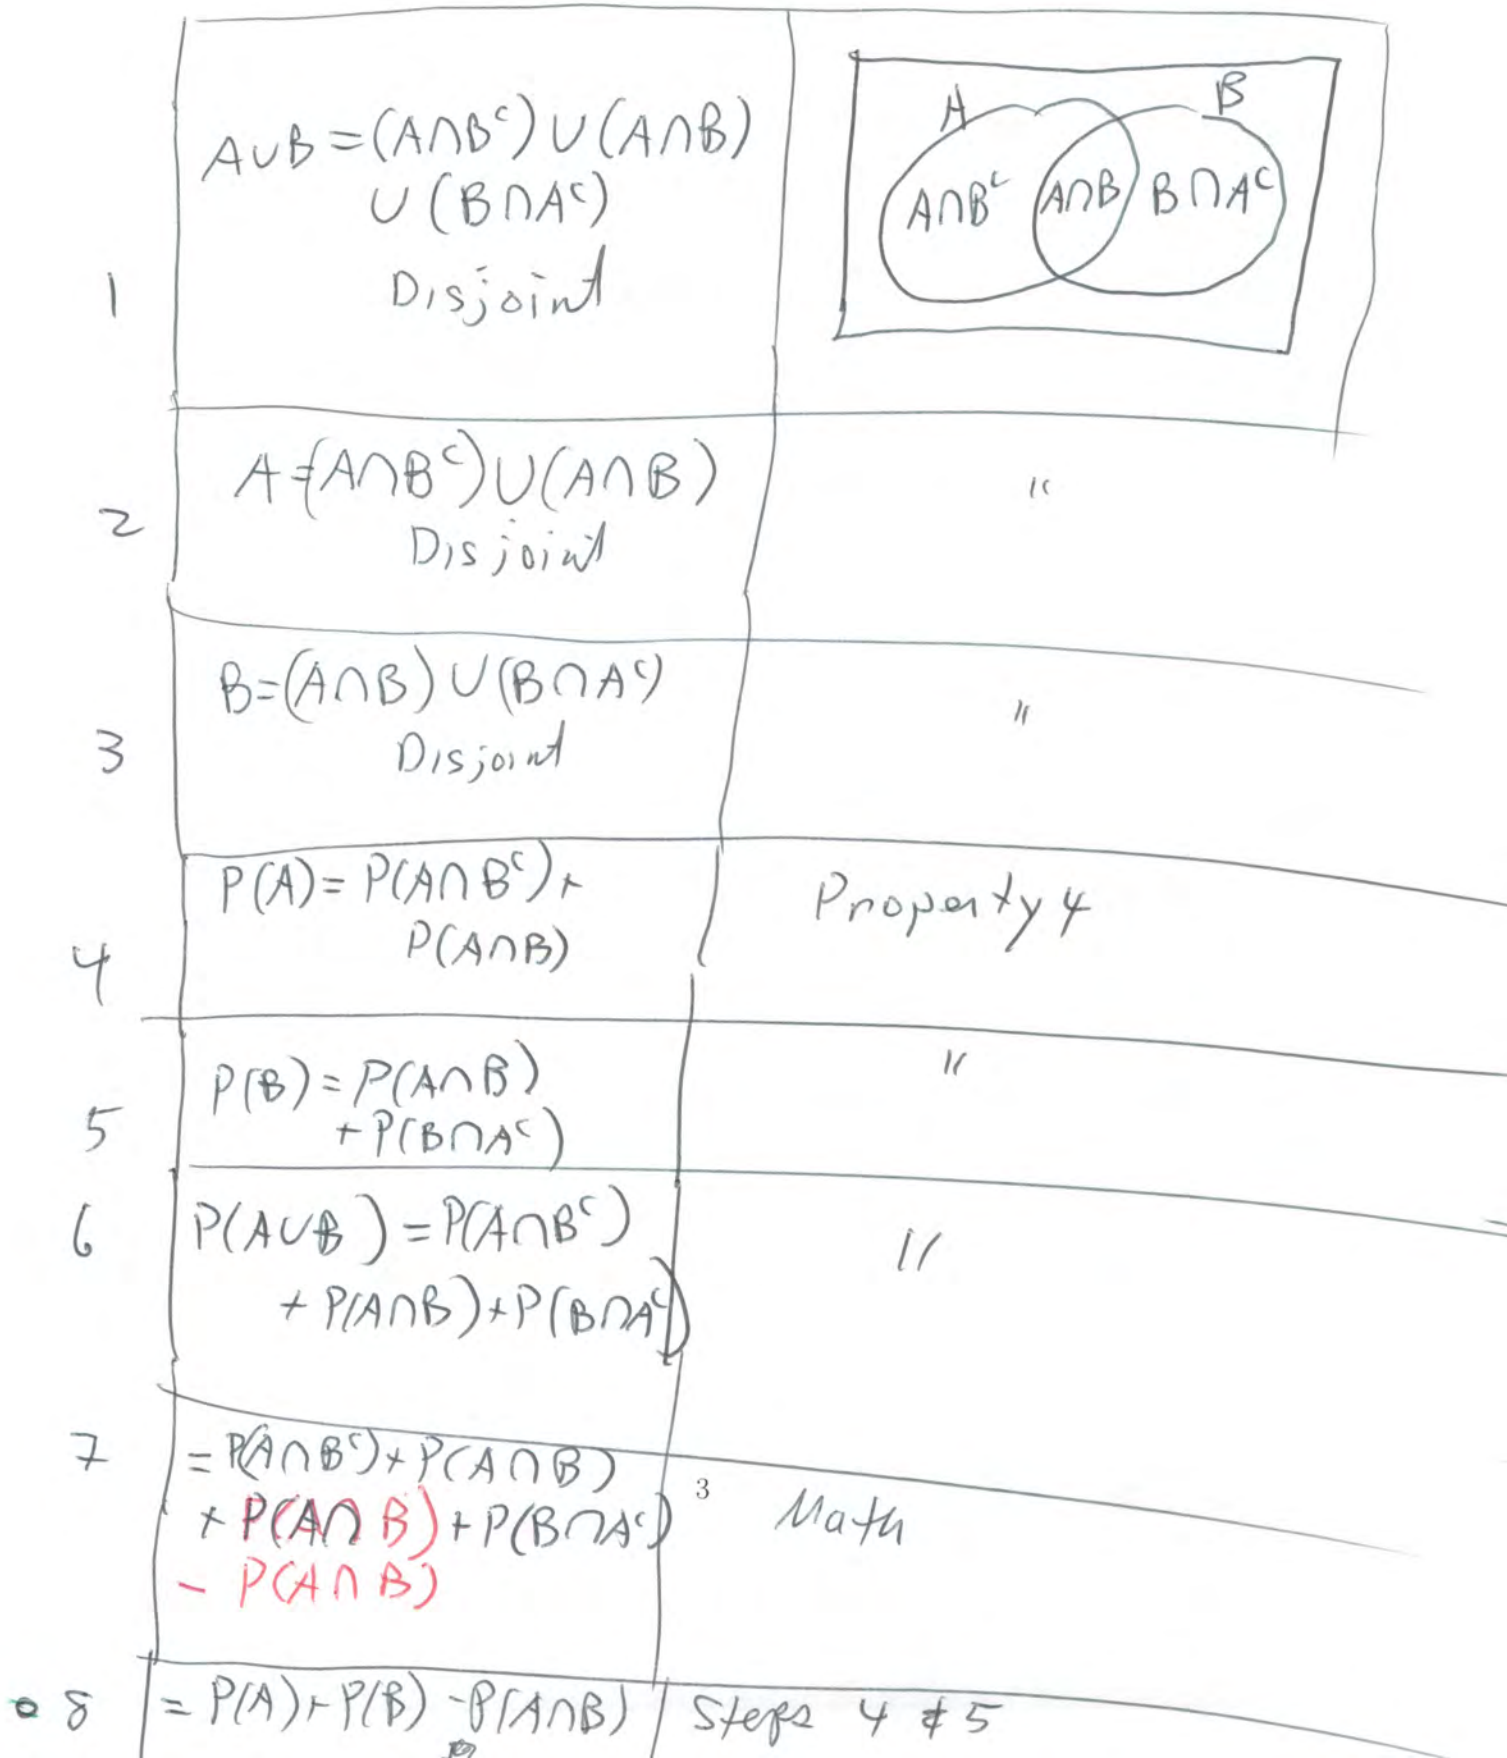 A∪B = (A∩Bᶜ) ∪ (A∩B)
∪ (B∩Aᶜ)
Disjoint
1
A
B
A∩Bᶜ
A∩B
B∩Aᶜ
A = (A∩Bᶜ) ∪ (A∩B)
Disjoint
2
"
B = (A∩B) ∪ (B∩Aᶜ)
Disjoint
3
"
P(A) = P(A∩Bᶜ) +
P(A∩B)
4
Property 4
P(B) = P(A∩B)
+ P(B∩Aᶜ)
5
"
6
P(A∪B) = P(A∩Bᶜ)
+ P(A∩B) + P(B∩Aᶜ)
"
7
= P(A∩Bᶜ) + P(A∩B)
+ P(A∩B) + P(B∩Aᶜ)
- P(A∩B)
3
Math
8
= P(A) + P(B) - P(A∩B)
Steps 4 & 5